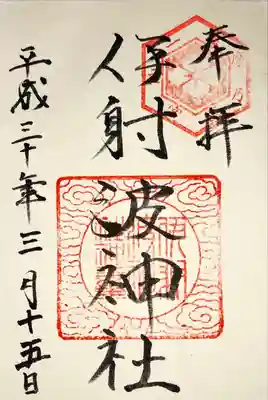 奉拝
伊射波神社
平成三十年三月十五日